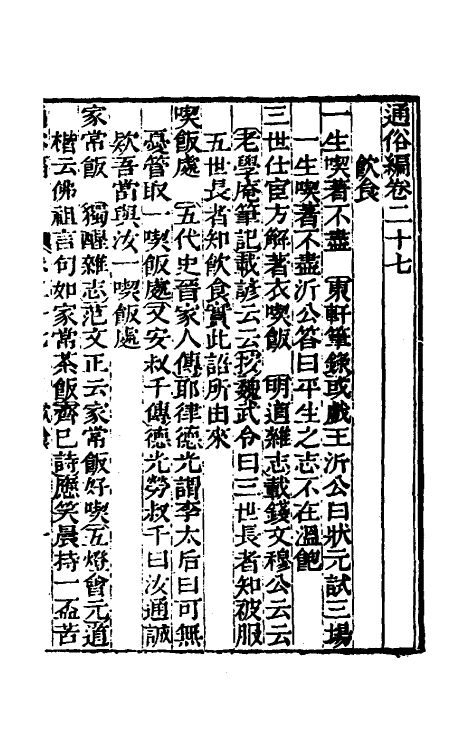 通俗編卷二十七
飲食
一生喫著不盡　東軒筆錄或戲王沂公曰狀元試三場
一生喫著不盡沂公答曰平生之志不在溫飽
三世仕宦方解著衣喫飯　明道雜志載錢文穆公云云
老學庵筆記載諺云云按魏武令曰三世長者知被服
五世長者知飲食實此語所由來
喫飯處　五代史晉家人傳耶律德光謂李太后曰可無
憂管取一喫飯處又安叔千傳德光勞叔千曰汝通誠
欵吾當與汝一喫飯處
家常飯　獨醒雜志范文正云家常飯好喫五燈會元道
楷云佛祖言句如家常茶飯齊己詩應笑晨持一盃苦